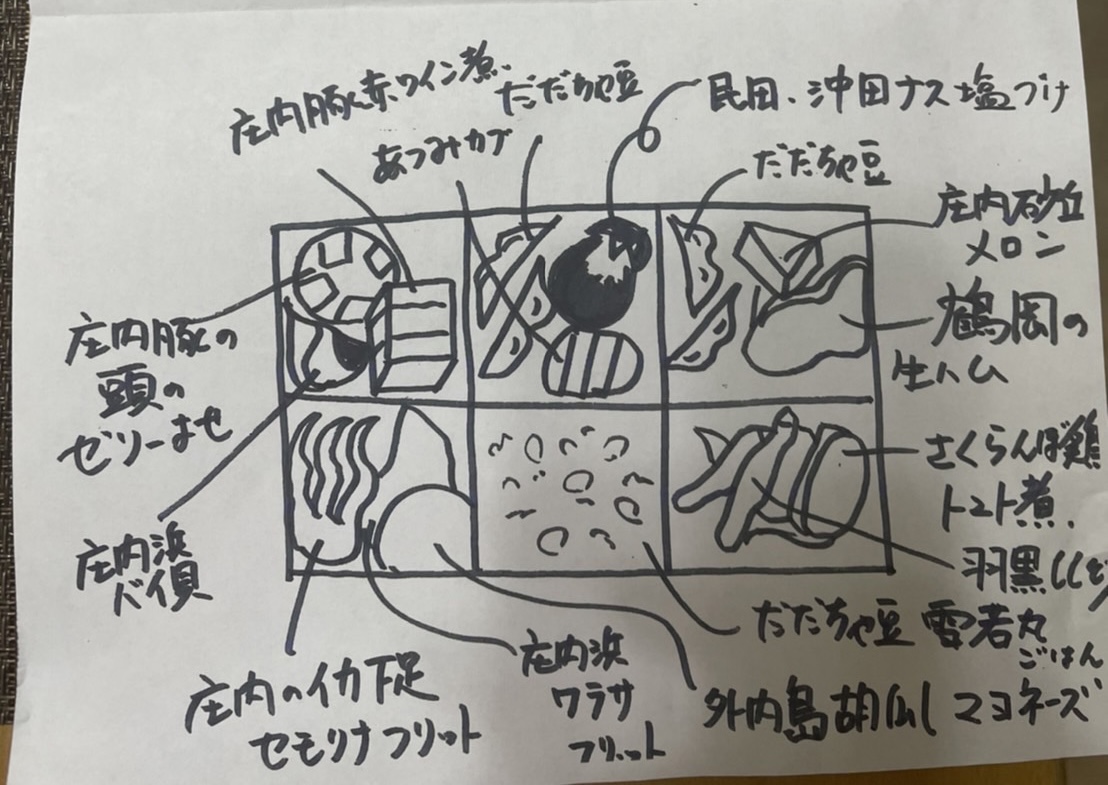 庄内豚赤ワイン煮
だだちゃ豆
民田、沖田ナス塩づけ
あつみカブ
だだちゃ豆
庄内砂丘
メロン
庄内豚の
頭の
ゼリーよせ
鶴岡の
生ハム
さくらんぼ鶏
トマト煮
庄内浜
バイ貝
羽黒ししとう
だだちゃ豆 雪若丸
ごはん
庄内のイカ下足
セモリナフリット
庄内浜
ワラサ
フリット
外内島胡瓜 マヨネーズ